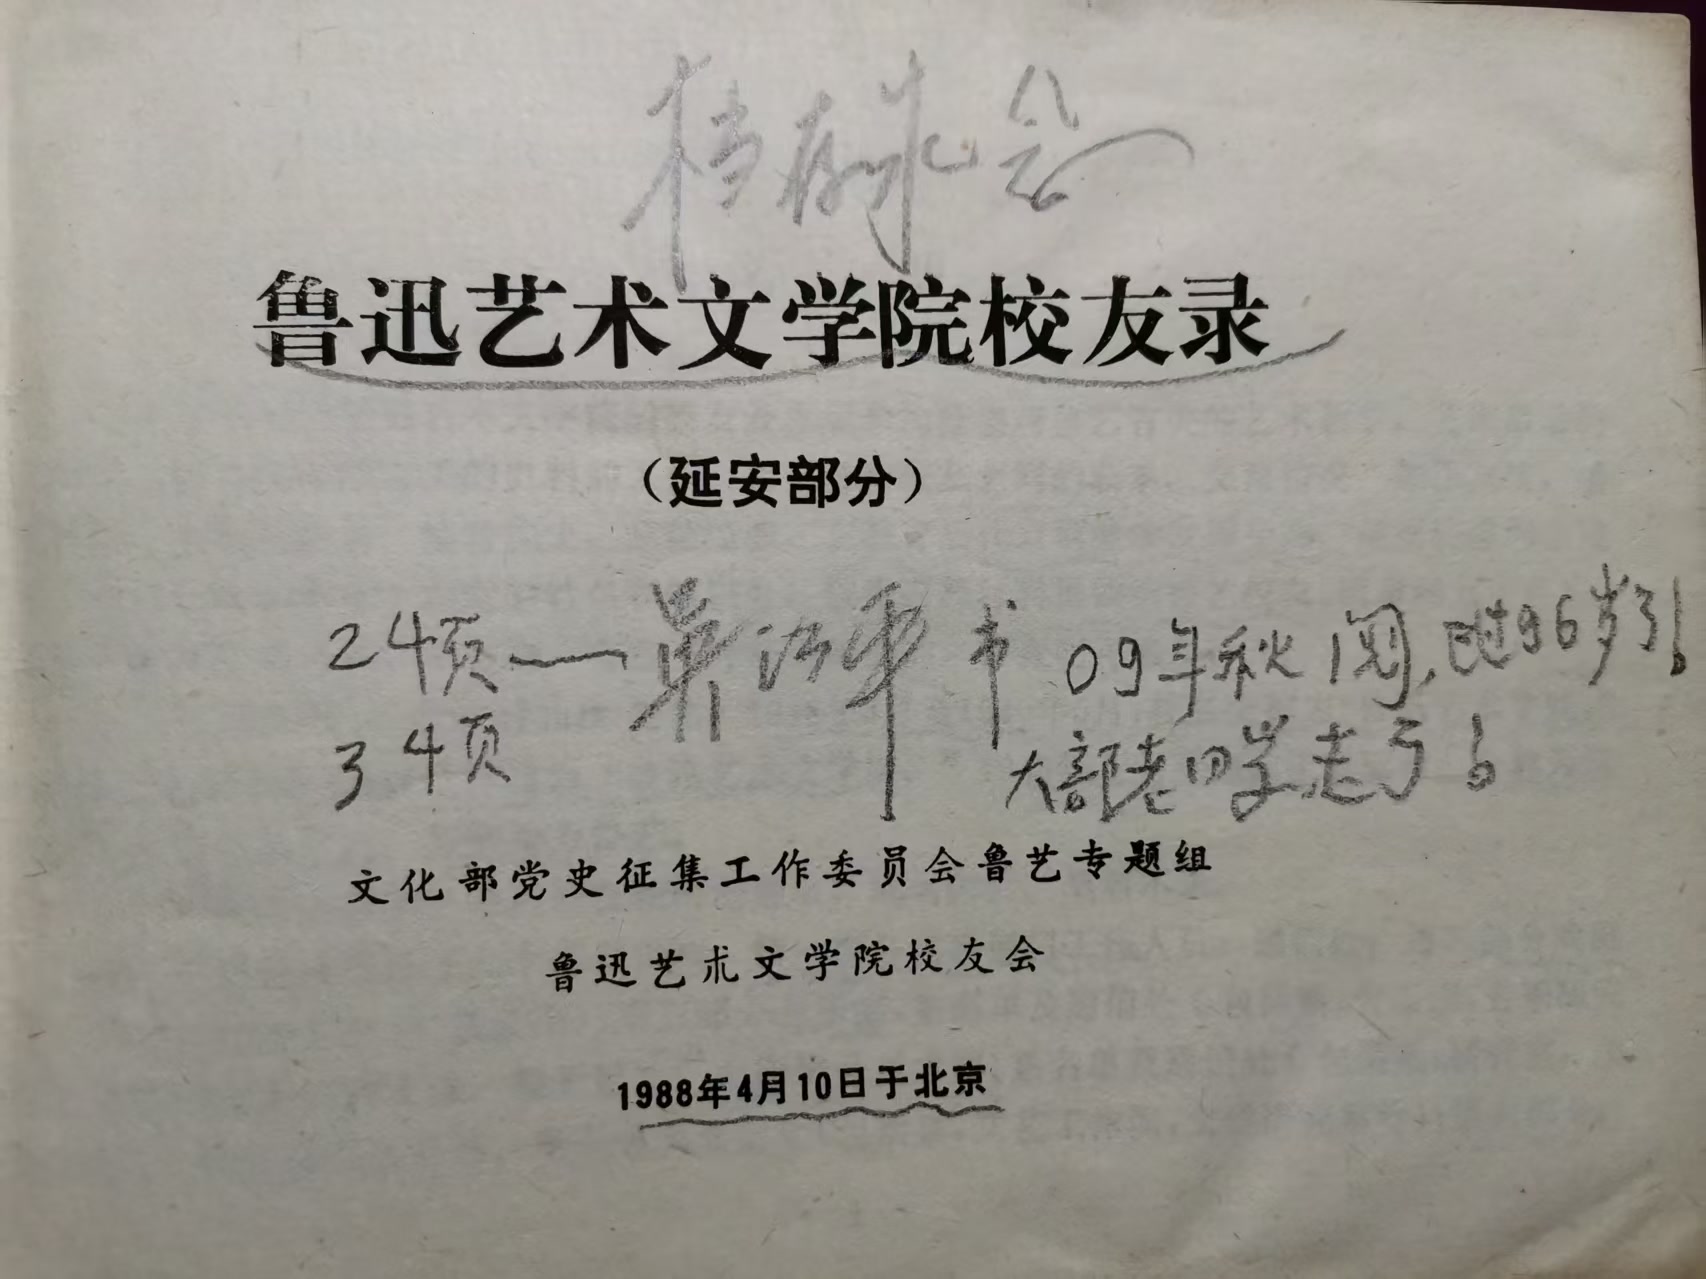 档存永念
鲁迅艺术文学院校友录
（延安部分）
24页——
书
09年秋阅，已过96岁了！
34页
大部老同学走了！
文化部党史征集工作委员会鲁艺专题组
鲁迅艺术文学院校友会
1988年4月10日于北京